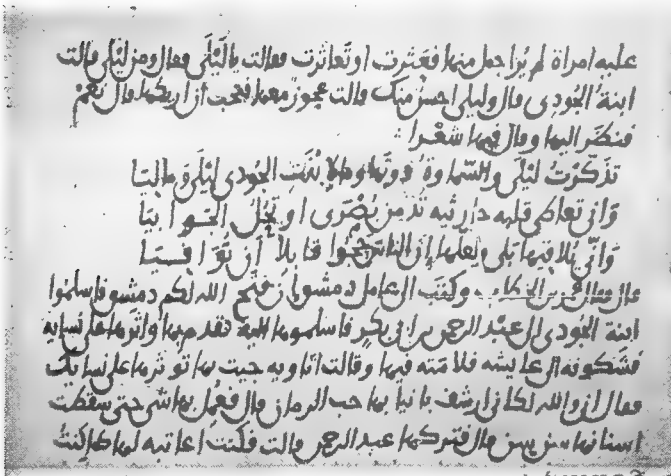 عليه امراة لم يرا جمل منها فعثرت او تعاثرت فقالت يا ليلى فقال ومن ليلى قالت
ابنة الجودى قال وليلى احسن منك قالت عجوز معها فتحب أن اريكها قال نعم
فنظر اليها وقال فيها شعرا :
تذكرت ليلى والسماوة دونها وما لابنت الجودى ليلى وماليا
وانى تعاطى قلبه حارثية تدمن بصرى او تحل الحوابيا
وانى تلاقيها بلى ولعلها إن الناس حجوا قابلا أن توافيا
قال فقال عمر بن الخطاب وكتب الى عامل دمشق أن فتح الله لكم دمشق فاسلموا
ابنة الجودى الى عبد الرحمن بن ابى بكر فاسلموها اليه فقدم بها واثرها على نسايه
فشكونه الى عايشه فلامته فيها وقالت حيت بها تو ثرها على نسايك
فقال انى والله لكانى ارشف بانيا بها حب الرمان قال فعمل بها شى حتى سقطت
اسنانها قال فتركها عبد الرحمن قالت فكنت اعاتبه لها كما كنت